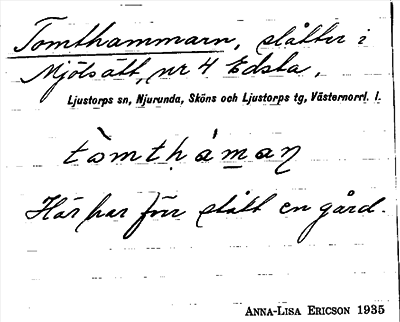 Tomthammarn, slåtter i
Mjölsätt, nr 4 Edsta,
Ljustorps sn, Njurunda, Sköns och Ljustorps tg, Västernorrl. l.
tòmthȧman
Här har förr stått en gård.
ANNA-LISA ERICSON 1935